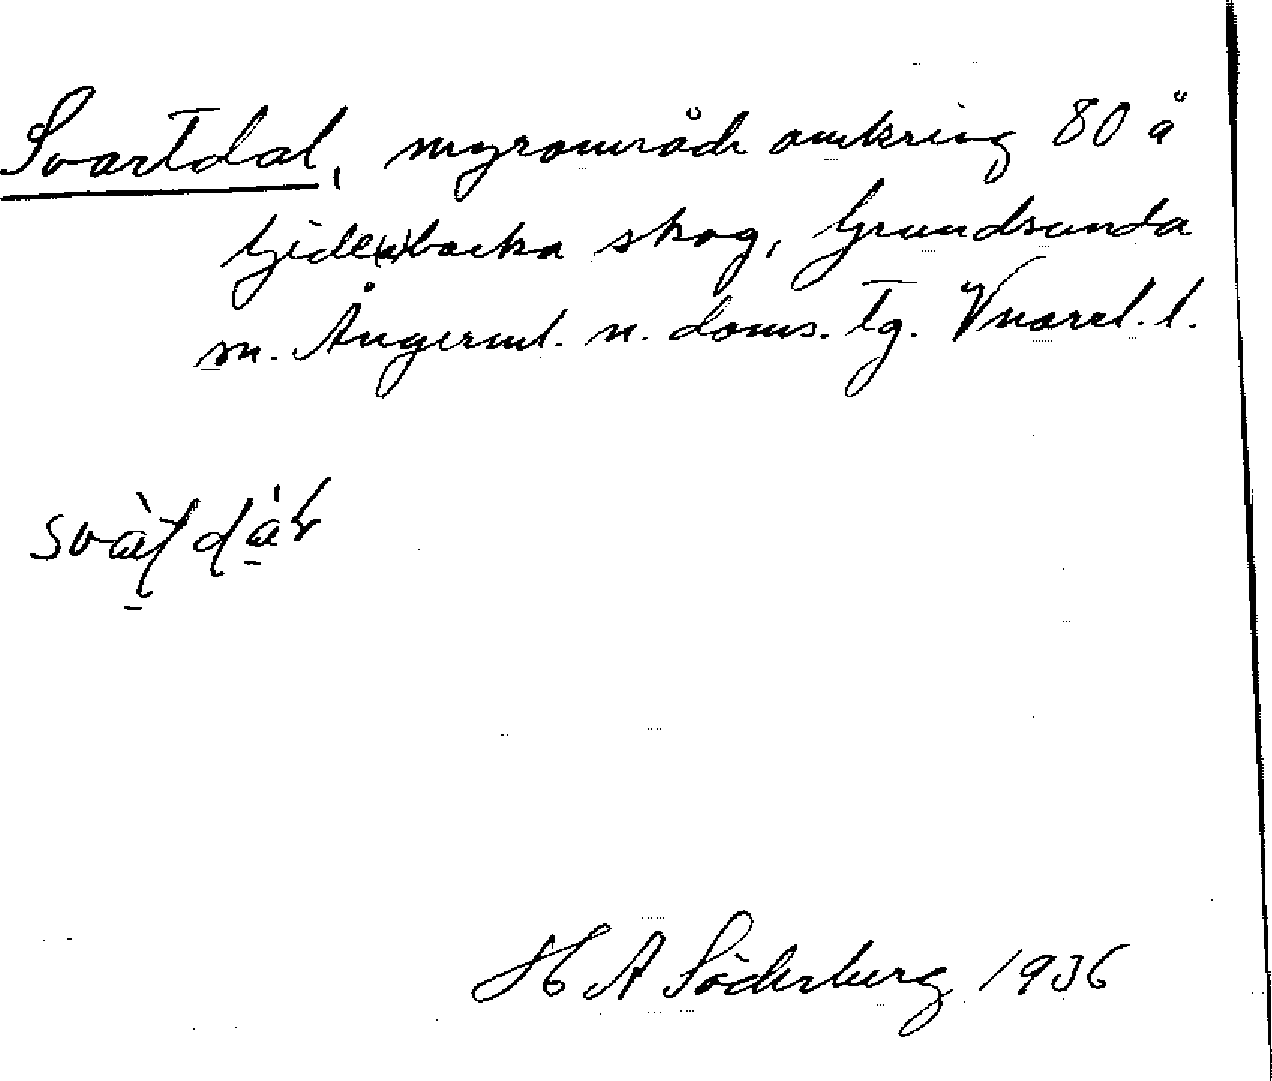 Svartdal, myrområde omkring 80 å
Gide(å)backa skog, Grundsunda
m. Ångerml. n. doms. tg. Vnorrl. l.
H A Söderberg 1936